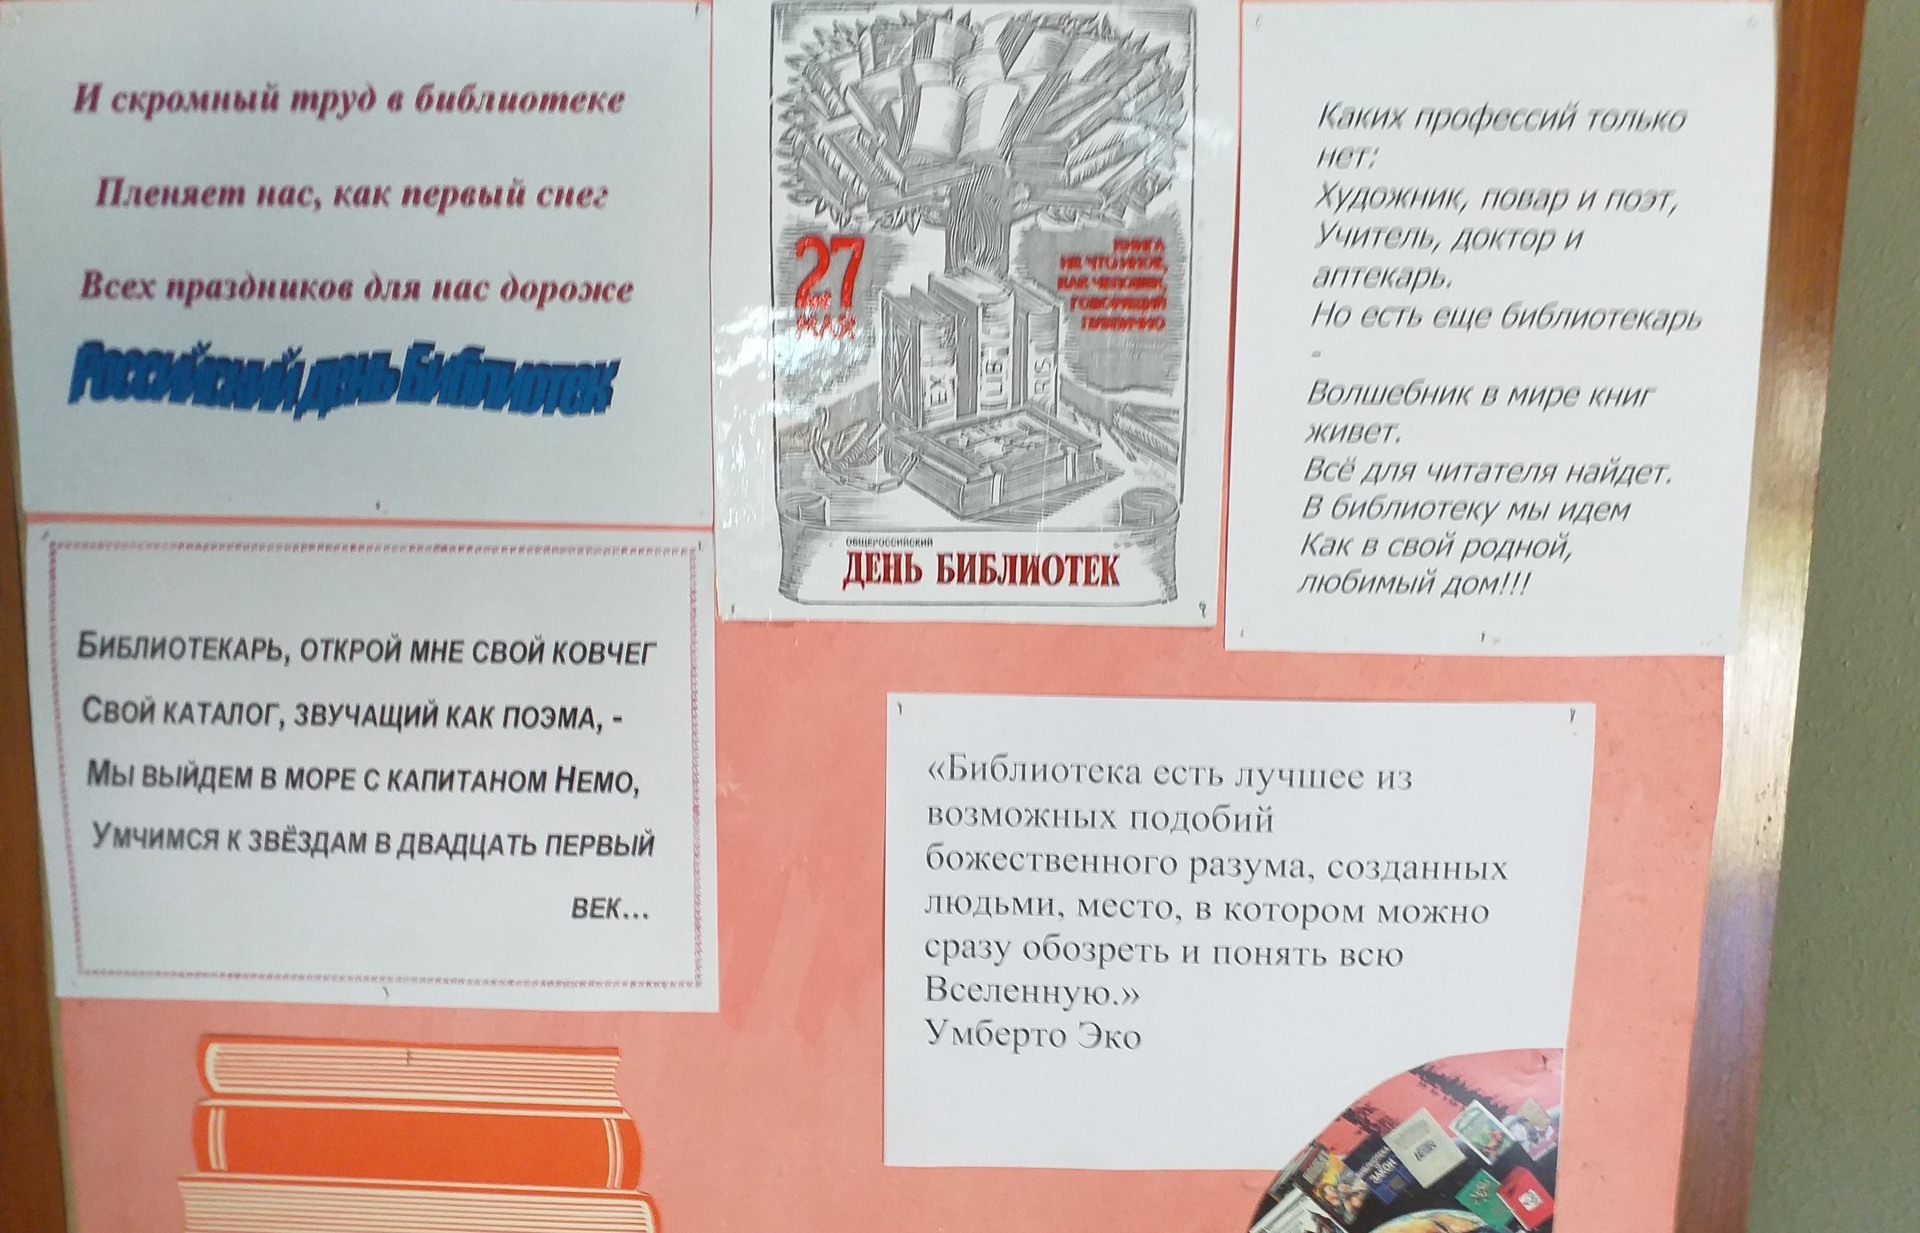 И скромный труд в библиотеке
Пленяет нас, как первый снег
Всех праздников для нас дороже
Российский день Библиотек
Библиотекарь, открой мне свой ковчег
Свой каталог, звучащий как поэма, -
Мы выйдем в море с капитаном Немо,
Умчимся к звёздам в двадцать первый
век...
27
МАЯ
КНИГА
НЕ ЧТО ИНОЕ,
КАК ЧЕЛОВЕК,
ГОВОРЯЩИЙ
ПУБЛИЧНО
EX
LIB
RIS
ОБЩЕРОССИЙСКИЙ
ДЕНЬ БИБЛИОТЕК
Каких профессий только
нет:
Художник, повар и поэт,
Учитель, доктор и
аптекарь.
Но есть еще библиотекарь
-
Волшебник в мире книг
живет.
Всё для читателя найдет.
В библиотеку мы идем
Как в свой родной,
любимый дом!!!
«Библиотека есть лучшее из
возможных подобий
божественного разума, созданных
людьми, место, в котором можно
сразу обозреть и понять всю
Вселенную.»
Умберто Эко
ЗАКОН